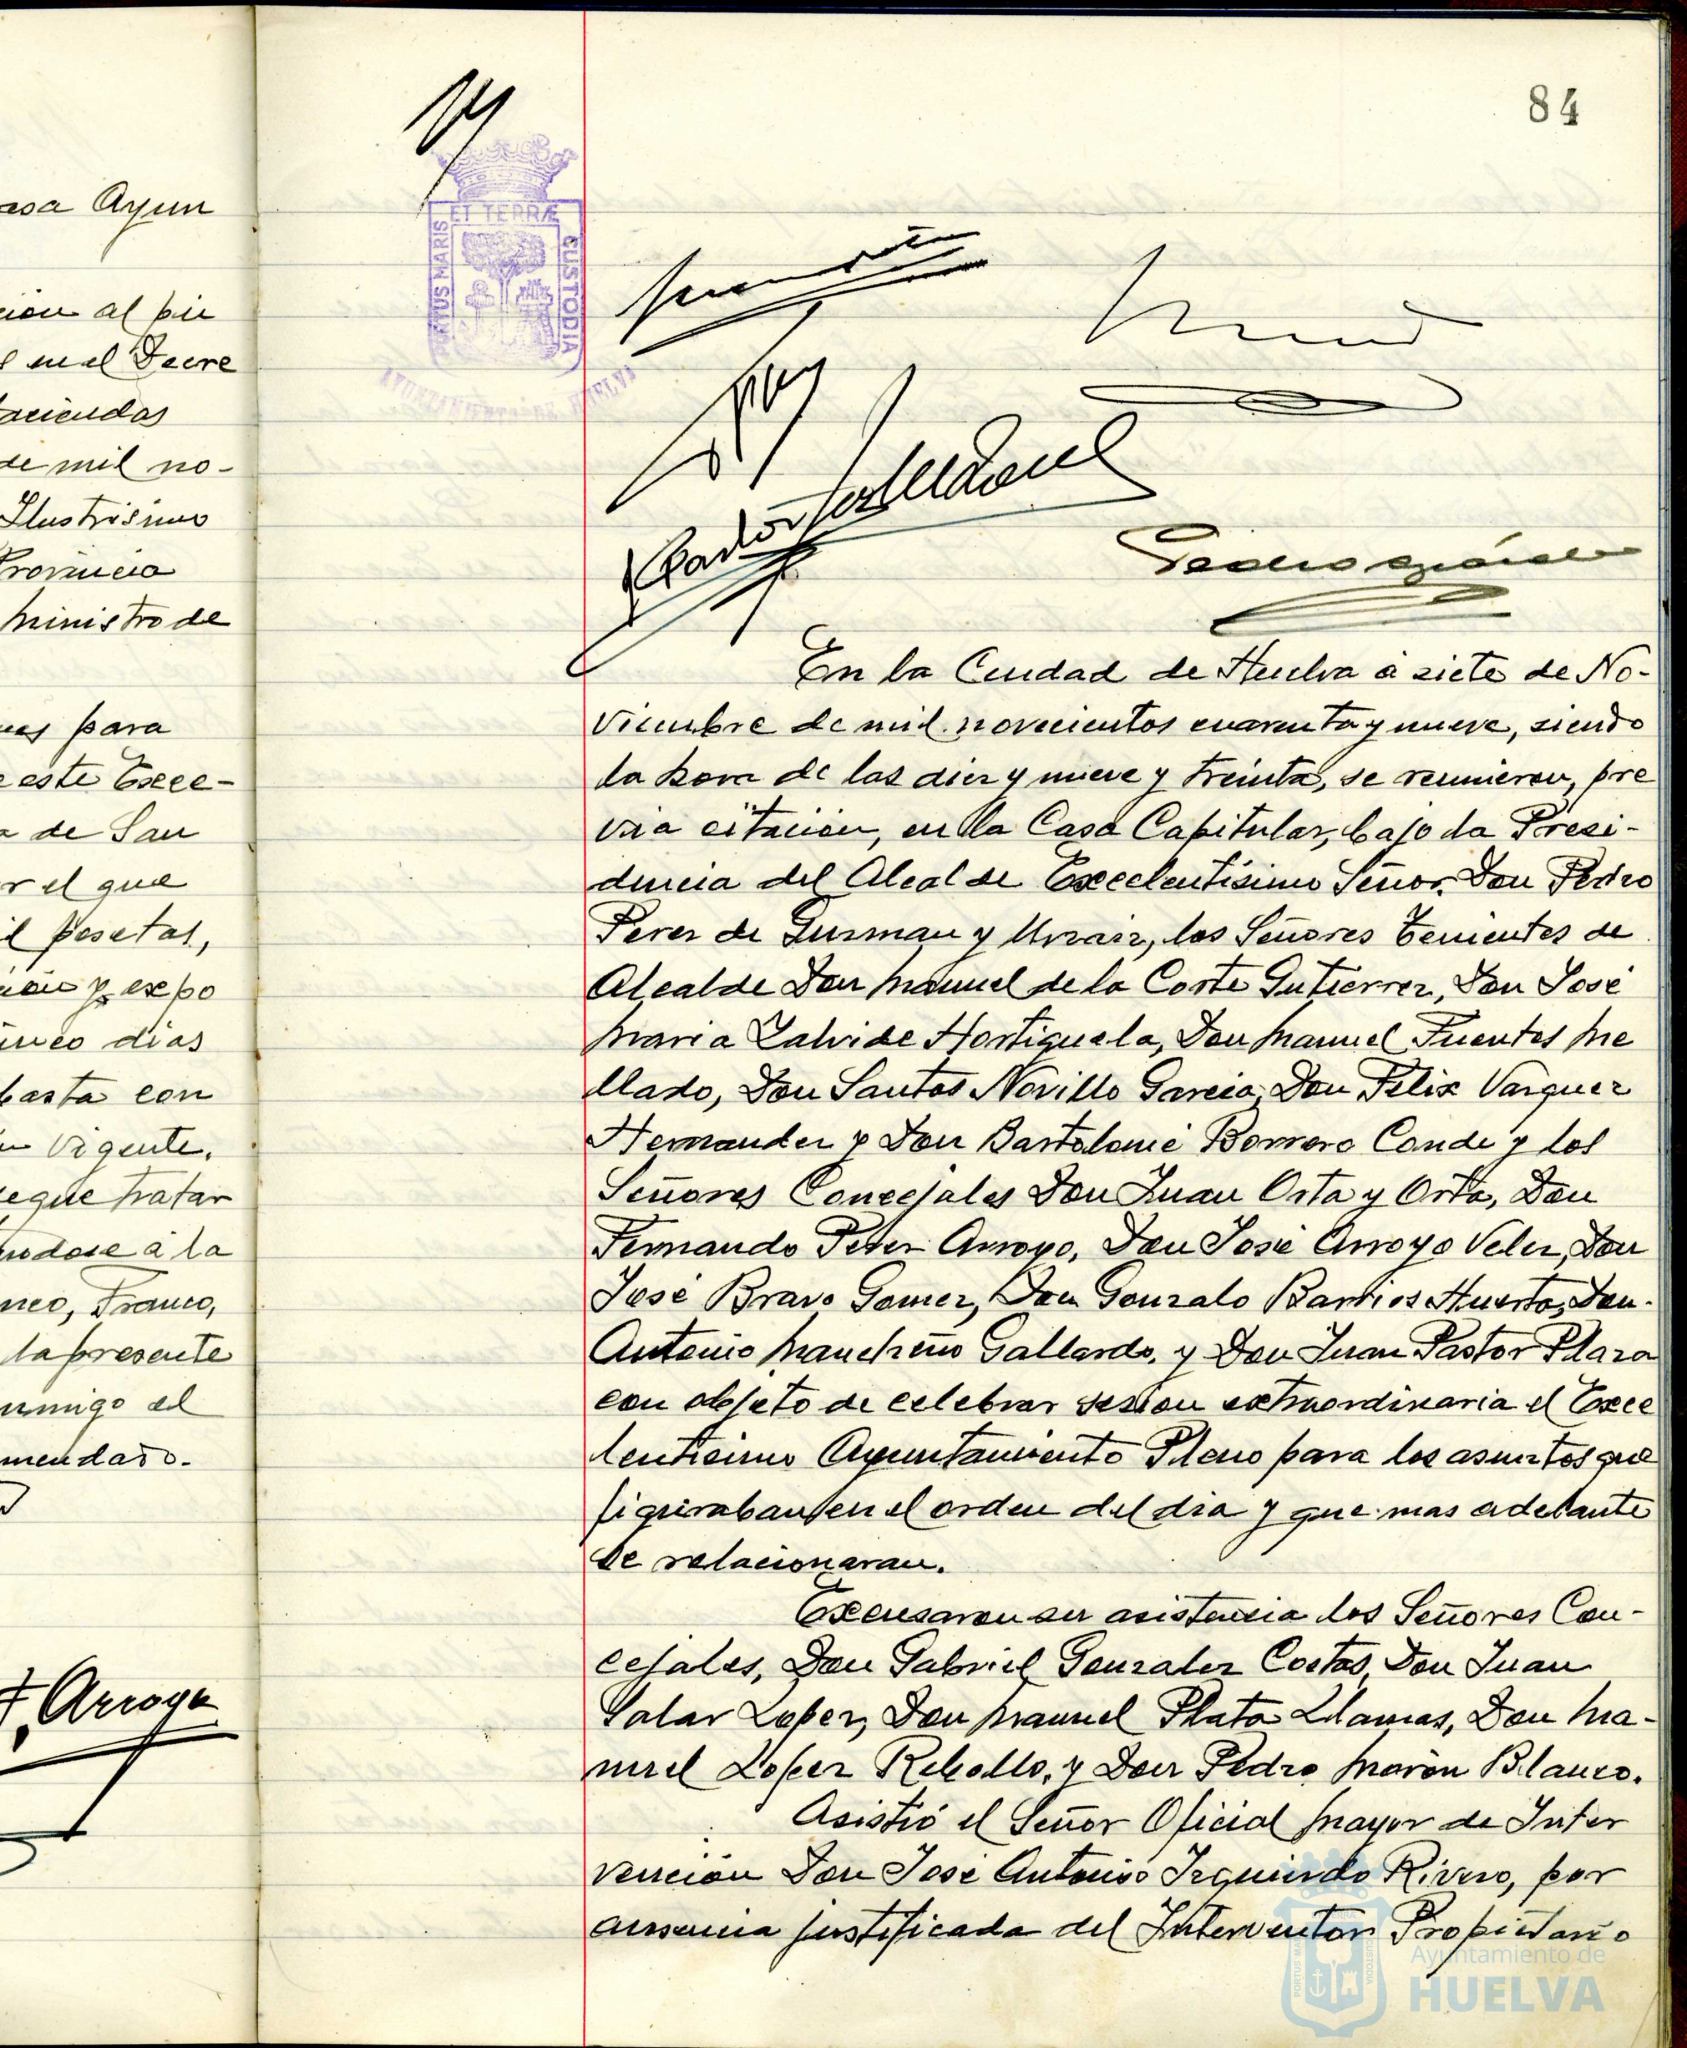 asa Ayun
ción al pie
s en el Decre
aciendas
de mil no-
Ilustrisimo
Provincia
Ministro de
nes para
e este Exce-
a de San
r el que
il pesetas,
ción y expo
inco dias
basta con
n vigente.
que tratar
ndose á la
nco, Franco,
la presente
nmigo el
mendado.
F. Arroyo
84
PORTUS MARIS ET TERRÆ CUSTODIA
AYUNTAMIENTO DE HUELVA
J Pastor
En la Ciudad de Huelva á siete de No-
viembre de mil novecientos cuarenta y nueve, siendo
la hora de las diez y nueve y treinta, se reunieron, pre
via citacion, en la Casa Capitular, bajo la Presi-
dencia del Alcalde Excelentisimo Señor Don Pedro
Perez de Guzman y Urzaiz, los Señores Tenientes de
Alcalde Don Manuel de la Corte Gutierrez, Don José
Maria Zalvide Hortiguela, Don Manuel Fuentes Me
llado, Don Santos Novillo Garcia, Don Felix Vazquez
Hernandez y Don Bartolomé Borrero Conde y los
Señores Concejales Don Juan Orta y Orta, Don
Fernando Perez Arroyo, Don José Arroyo Velez, Don
José Bravo Gomez, Don Gonzalo Barrios Huerta, Don
Antonio Mancheño Gallardo, y Don Juan Pastor Plaza
con objeto de celebrar sesion extraordinaria el Exce
lentisimo Ayuntamiento Pleno para los asuntos que
figuraban en el orden del dia y que mas adelante
se relacionaran.
Excusaron su asistencia los Señores Con-
cejales, Don Gabriel Gonzalez Costas, Don Juan
Salar Lopez, Don Manuel Plata Llamas, Don Ma-
nuel Lopez Rebollo, y Don Pedro Morón Blanco.
Asistió el Señor Oficial Mayor de Inter
vencion Don José Antonio Izquierdo Rivero, por
ausencia justificada del Interventor Propietario
Ayuntamiento de
HUELVA